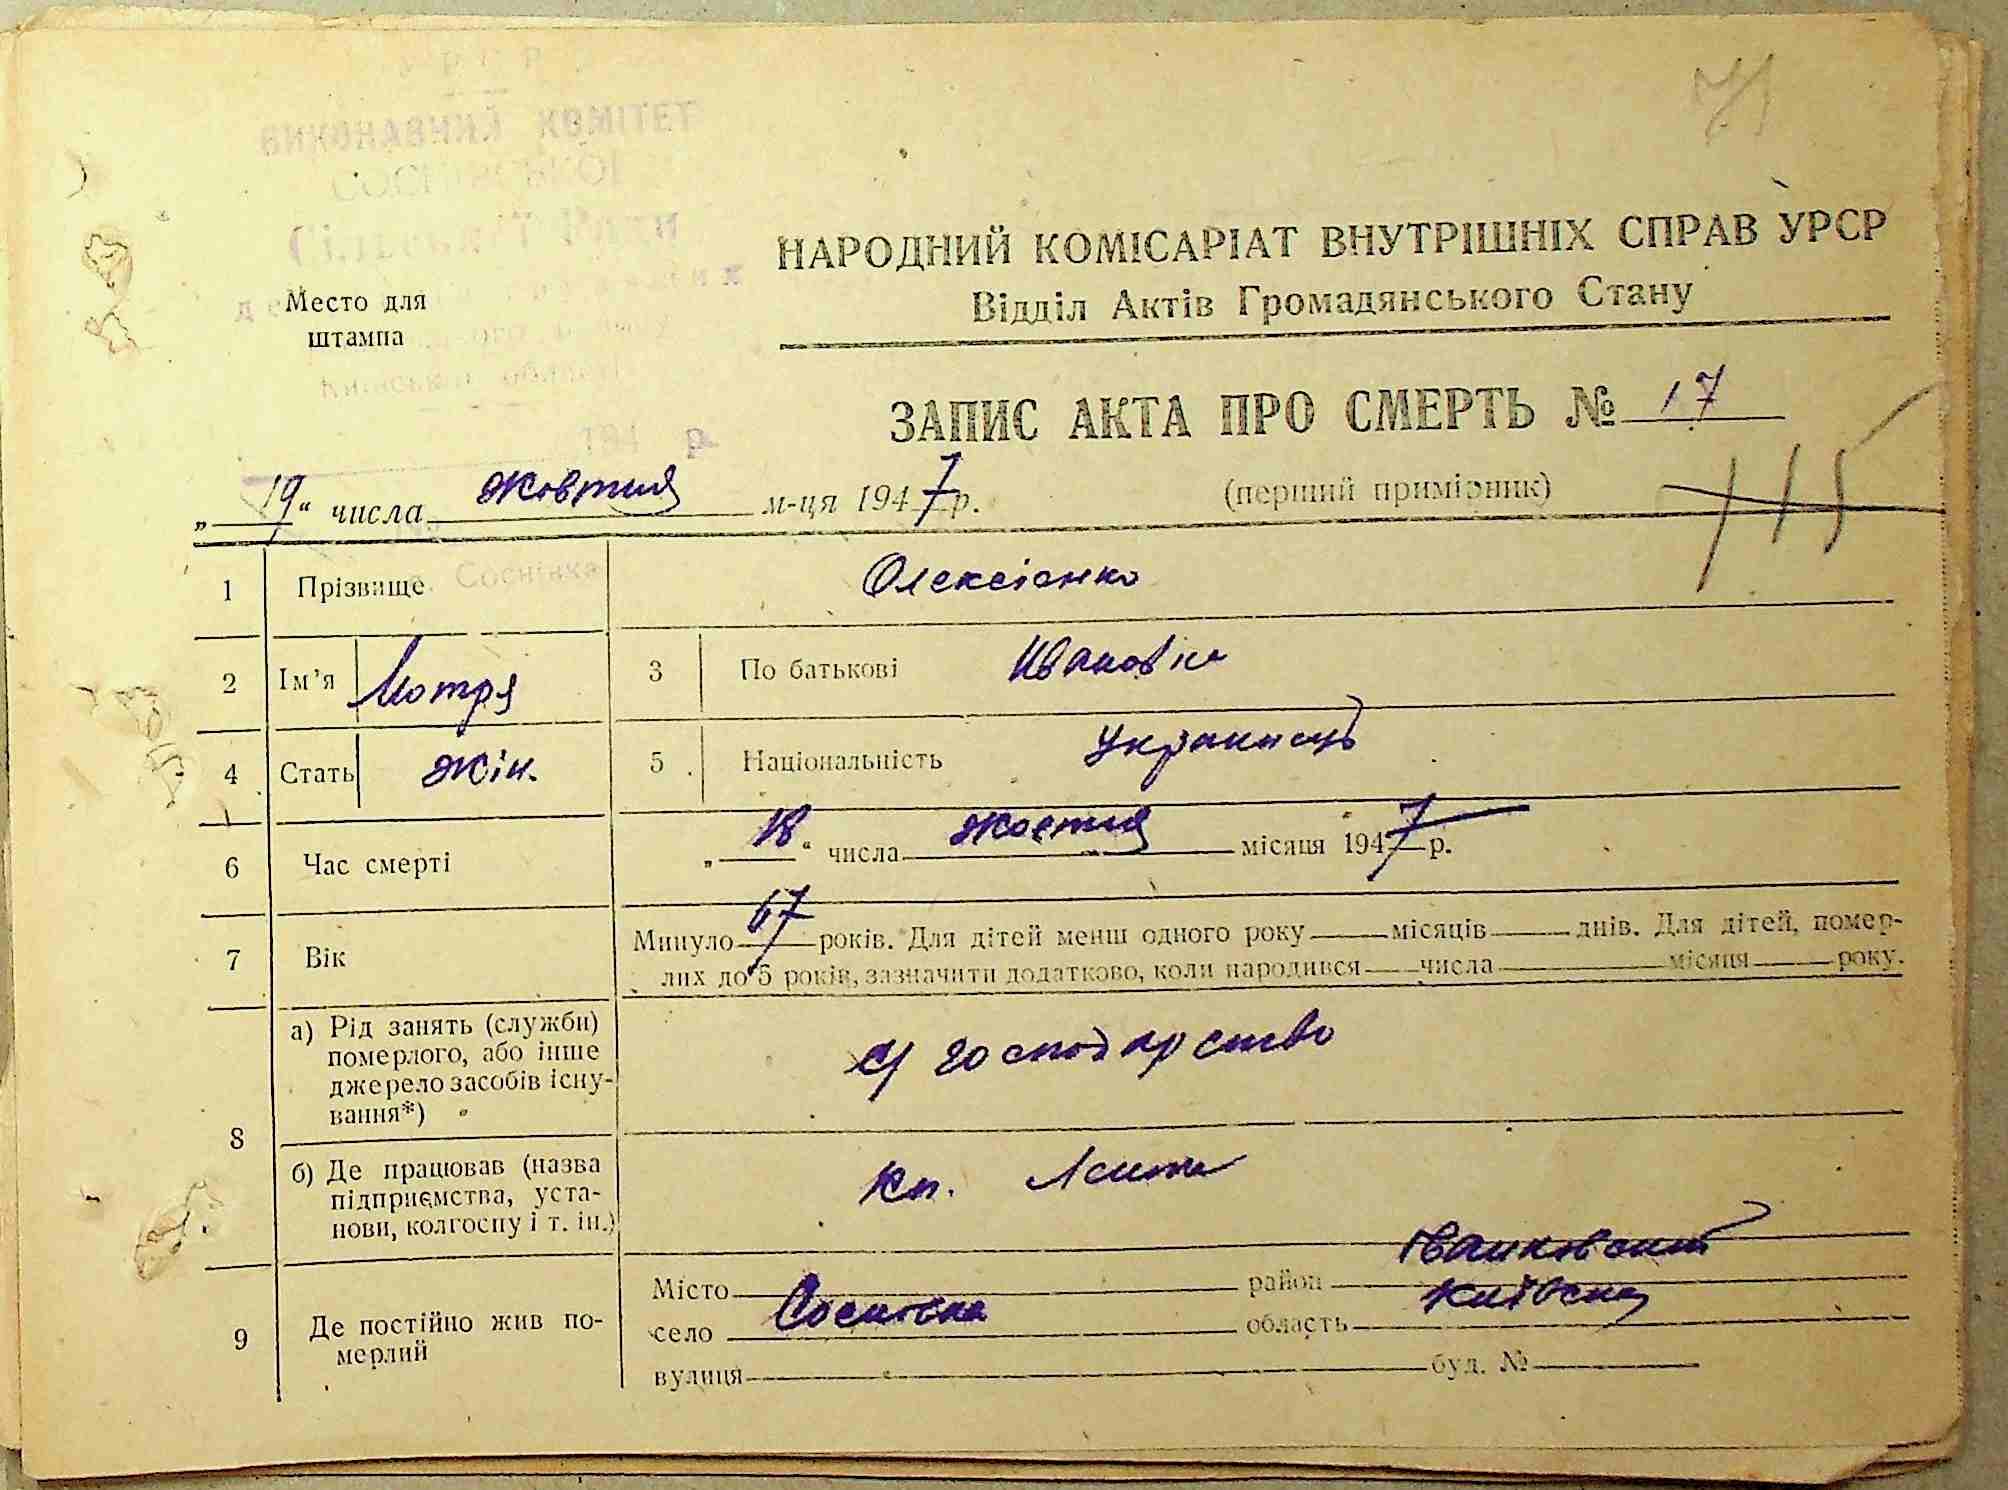 УРСР
71
ВИКОНАВЧИЙ КОМІТЕТ
СОСНІВСЬКОЇ
Сільської Ради
НАРОДНИЙ КОМІСАРІАТ ВНУТРІШНІХ СПРАВ УРСР
Відділ Актів Громадянського Стану
Место для
штампа
Київської області
ЗАПИС АКТА ПРО СМЕРТЬ № 17
194 р.
„19“ числа жовтня м-ця 1947 р. (перший примірник)
115
1 Прізвище Олексієнко
Соснівка
2 Ім’я Мотря 3 По батькові Ивановна
4 Стать жін. 5 Національність
6 Час смерті „18“ числа жовтня місяця 1947 р.
7 Вік Минуло 67 років. Для дітей менш одного року місяців днів. Для дітей, помер-
лих до 5 років, зазначити додатково, коли народився числа місяця року.
8 а) Рід занять (служби)
померлого, або інше
джерело засобів існу-
вання*)
с/господарство
б) Де працював (назва
підприємства, уста-
нови, колгоспу і т. ін.)
9 Де постійно жив по-
мерлий
Місто район Іванковский
село Соснівка область Київська
вулиця буд. №